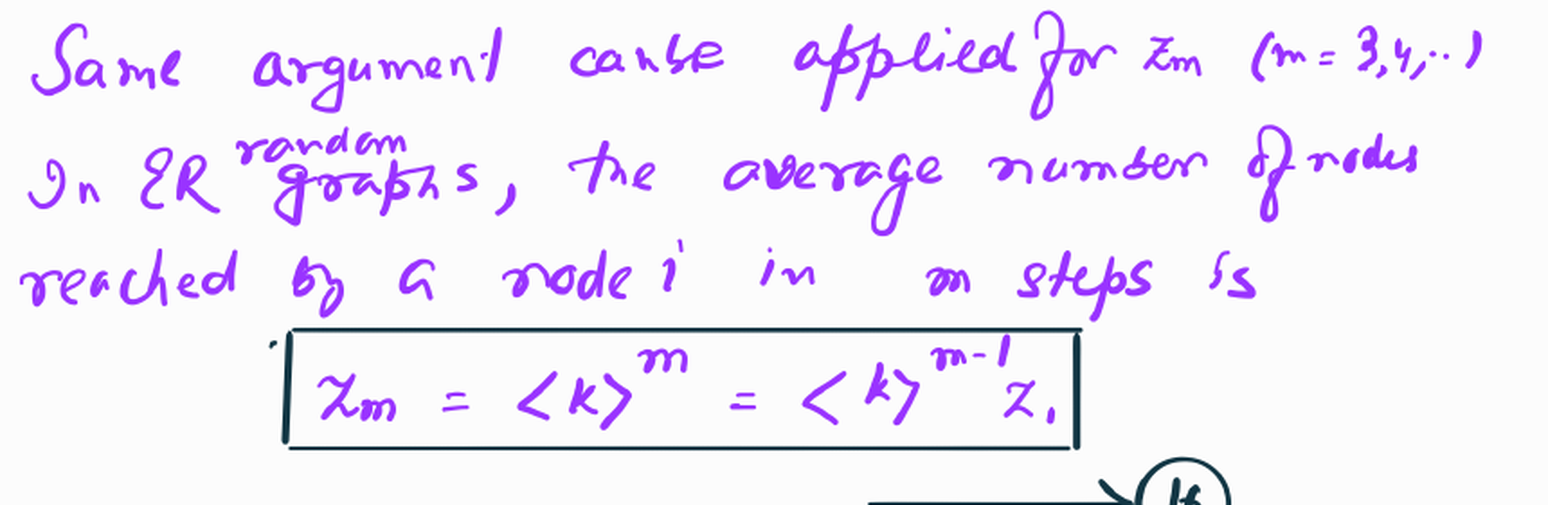 Same argument can be applied for Zm (m = 3,4,..)
In ER random graphs, the average number of nodes
reached by a node i in m steps is
Zm = <k>^m = <k>^m-1 Z1